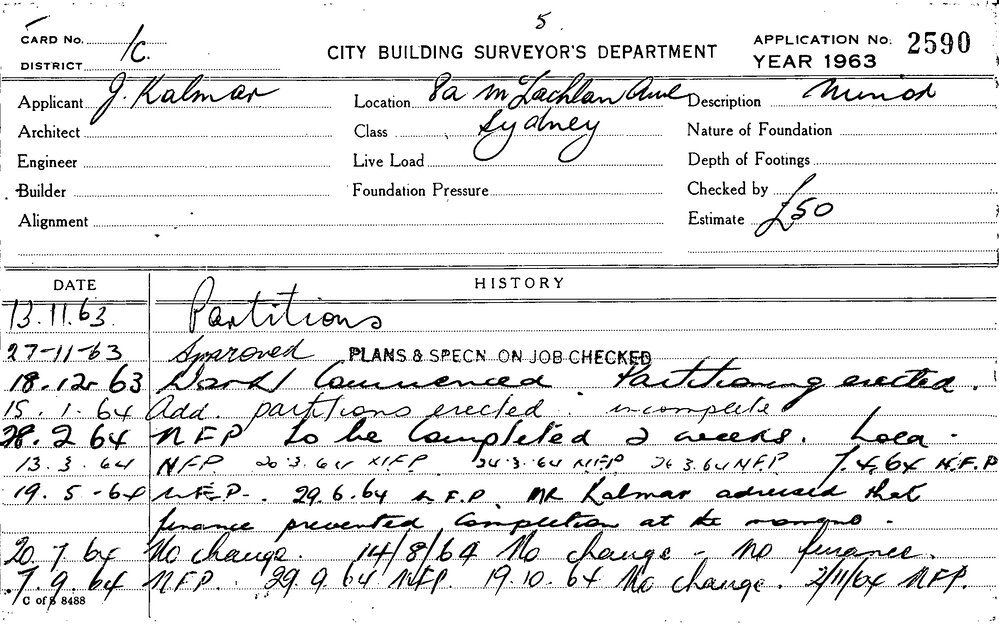 5
CARD No. 1c.
DISTRICT
CITY BUILDING SURVEYOR'S DEPARTMENT
APPLICATION No. 2590
YEAR 1963
Applicant J. Kalmar
Location 8a McLachlan Ave
Description Minor
Architect
Class Sydney
Nature of Foundation
Engineer
Live Load
Depth of Footings
Builder
Foundation Pressure
Checked by
Alignment
Estimate £50
DATE HISTORY
13.11.63. Partitions
27-11-63 Approved PLANS & SPECN ON JOB CHECKED
18.12.63 Work Commenced Partitioning erected.
15.1.64 Add. partitions erected. incomplete
28.2.64 NFP to be Completed 2 weeks.
13.3.64 NFP 20.3.64 NFP 24.3.64 NFP 26.3.64 NFP 7.4.64 N.F.P
19.5-64 N.F.P. 29.6.64 N.F.P MR Kalmar advised that
finance prevented Completion at the
20.7.64 No change. 14/8/64 No change - no finance.
7.9.64 NFP. 29.9.64 NFP. 19.10.64 No change. 2/11/64 NFP.
C of S 8488